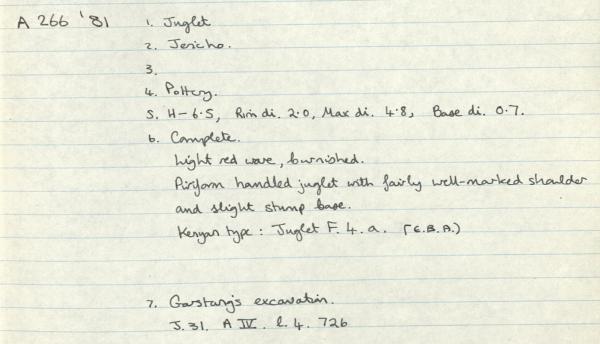 A 266 '81 1. Juglet
2. Jericho.
3.
4. Pottery.
5. H-6.5, Rim di. 2.0, Max di. 4.8, Base di. 0.7.
6. Complete.
Light red ware, burnished.
Piriform handled juglet with fairly well-marked shoulder
and slight stump base.
Kenyon type: Juglet F. 4. a. (E.B.A.)
7. Garstang's excavation.
J. 31. A IV. l. 4. 726